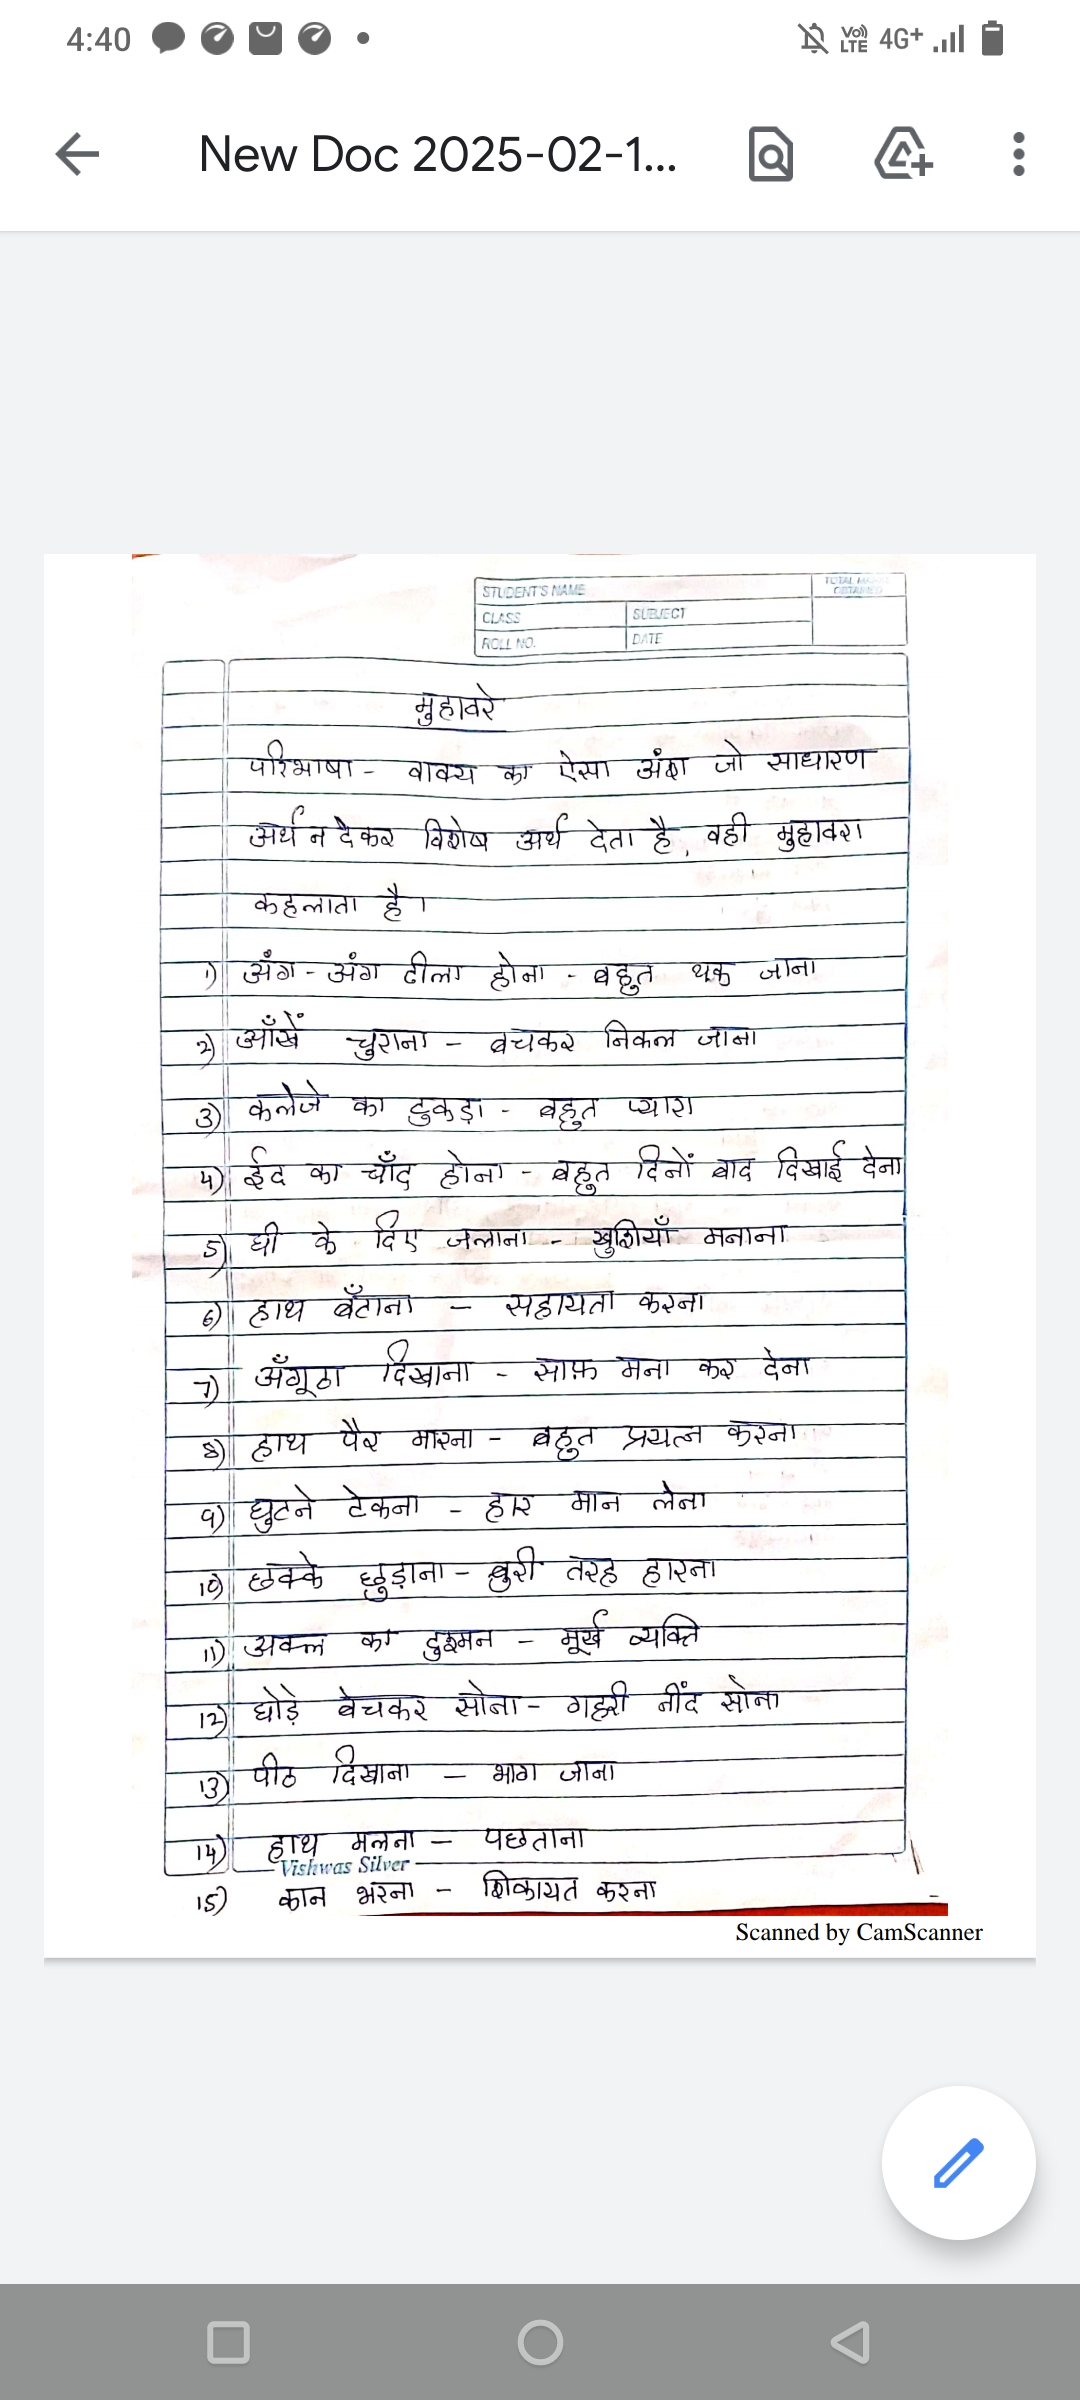 4:40 Vo) LTE 4G+
New Doc 2025-02-1...
STUDENT'S NAME
TOTAL MARKS OBTAINED
CLASS SUBJECT
ROLL NO. DATE
मुहावरे
परिभाषा - वाक्य का ऐसा अंश जो साधारण
अर्थ न देकर विशेष अर्थ देता है, वही मुहावरा
कहलाता है।
1) अंग - अंग ढीला होना - बहुत थक जाना
2) आँखें चुराना - बचकर निकल जाना
3) कलेजे का टुकड़ा - बहुत प्यारा
4) ईद का चाँद होना - बहुत दिनों बाद दिखाई देना
5) घी के दिए जलाना - खुशियाँ मनाना
6) हाथ बँटाना - सहायता करना
7) अँगूठा दिखाना - साफ़ मना कर देना
8) हाथ पैर मारना - बहुत प्रयत्न करना
9) घुटने टेकना - हार मान लेना
10) छक्के छुड़ाना - बुरी तरह हारना
11) अक्ल का दुश्मन - मूर्ख व्यक्ति
12) घोड़े बेचकर सोना - गहरी नींद सोना
13) पीठ दिखाना - भाग जाना
14) हाथ मलना - पछताना
Vishwas Silver
15) कान भरना - शिकायत करना
Scanned by CamScanner